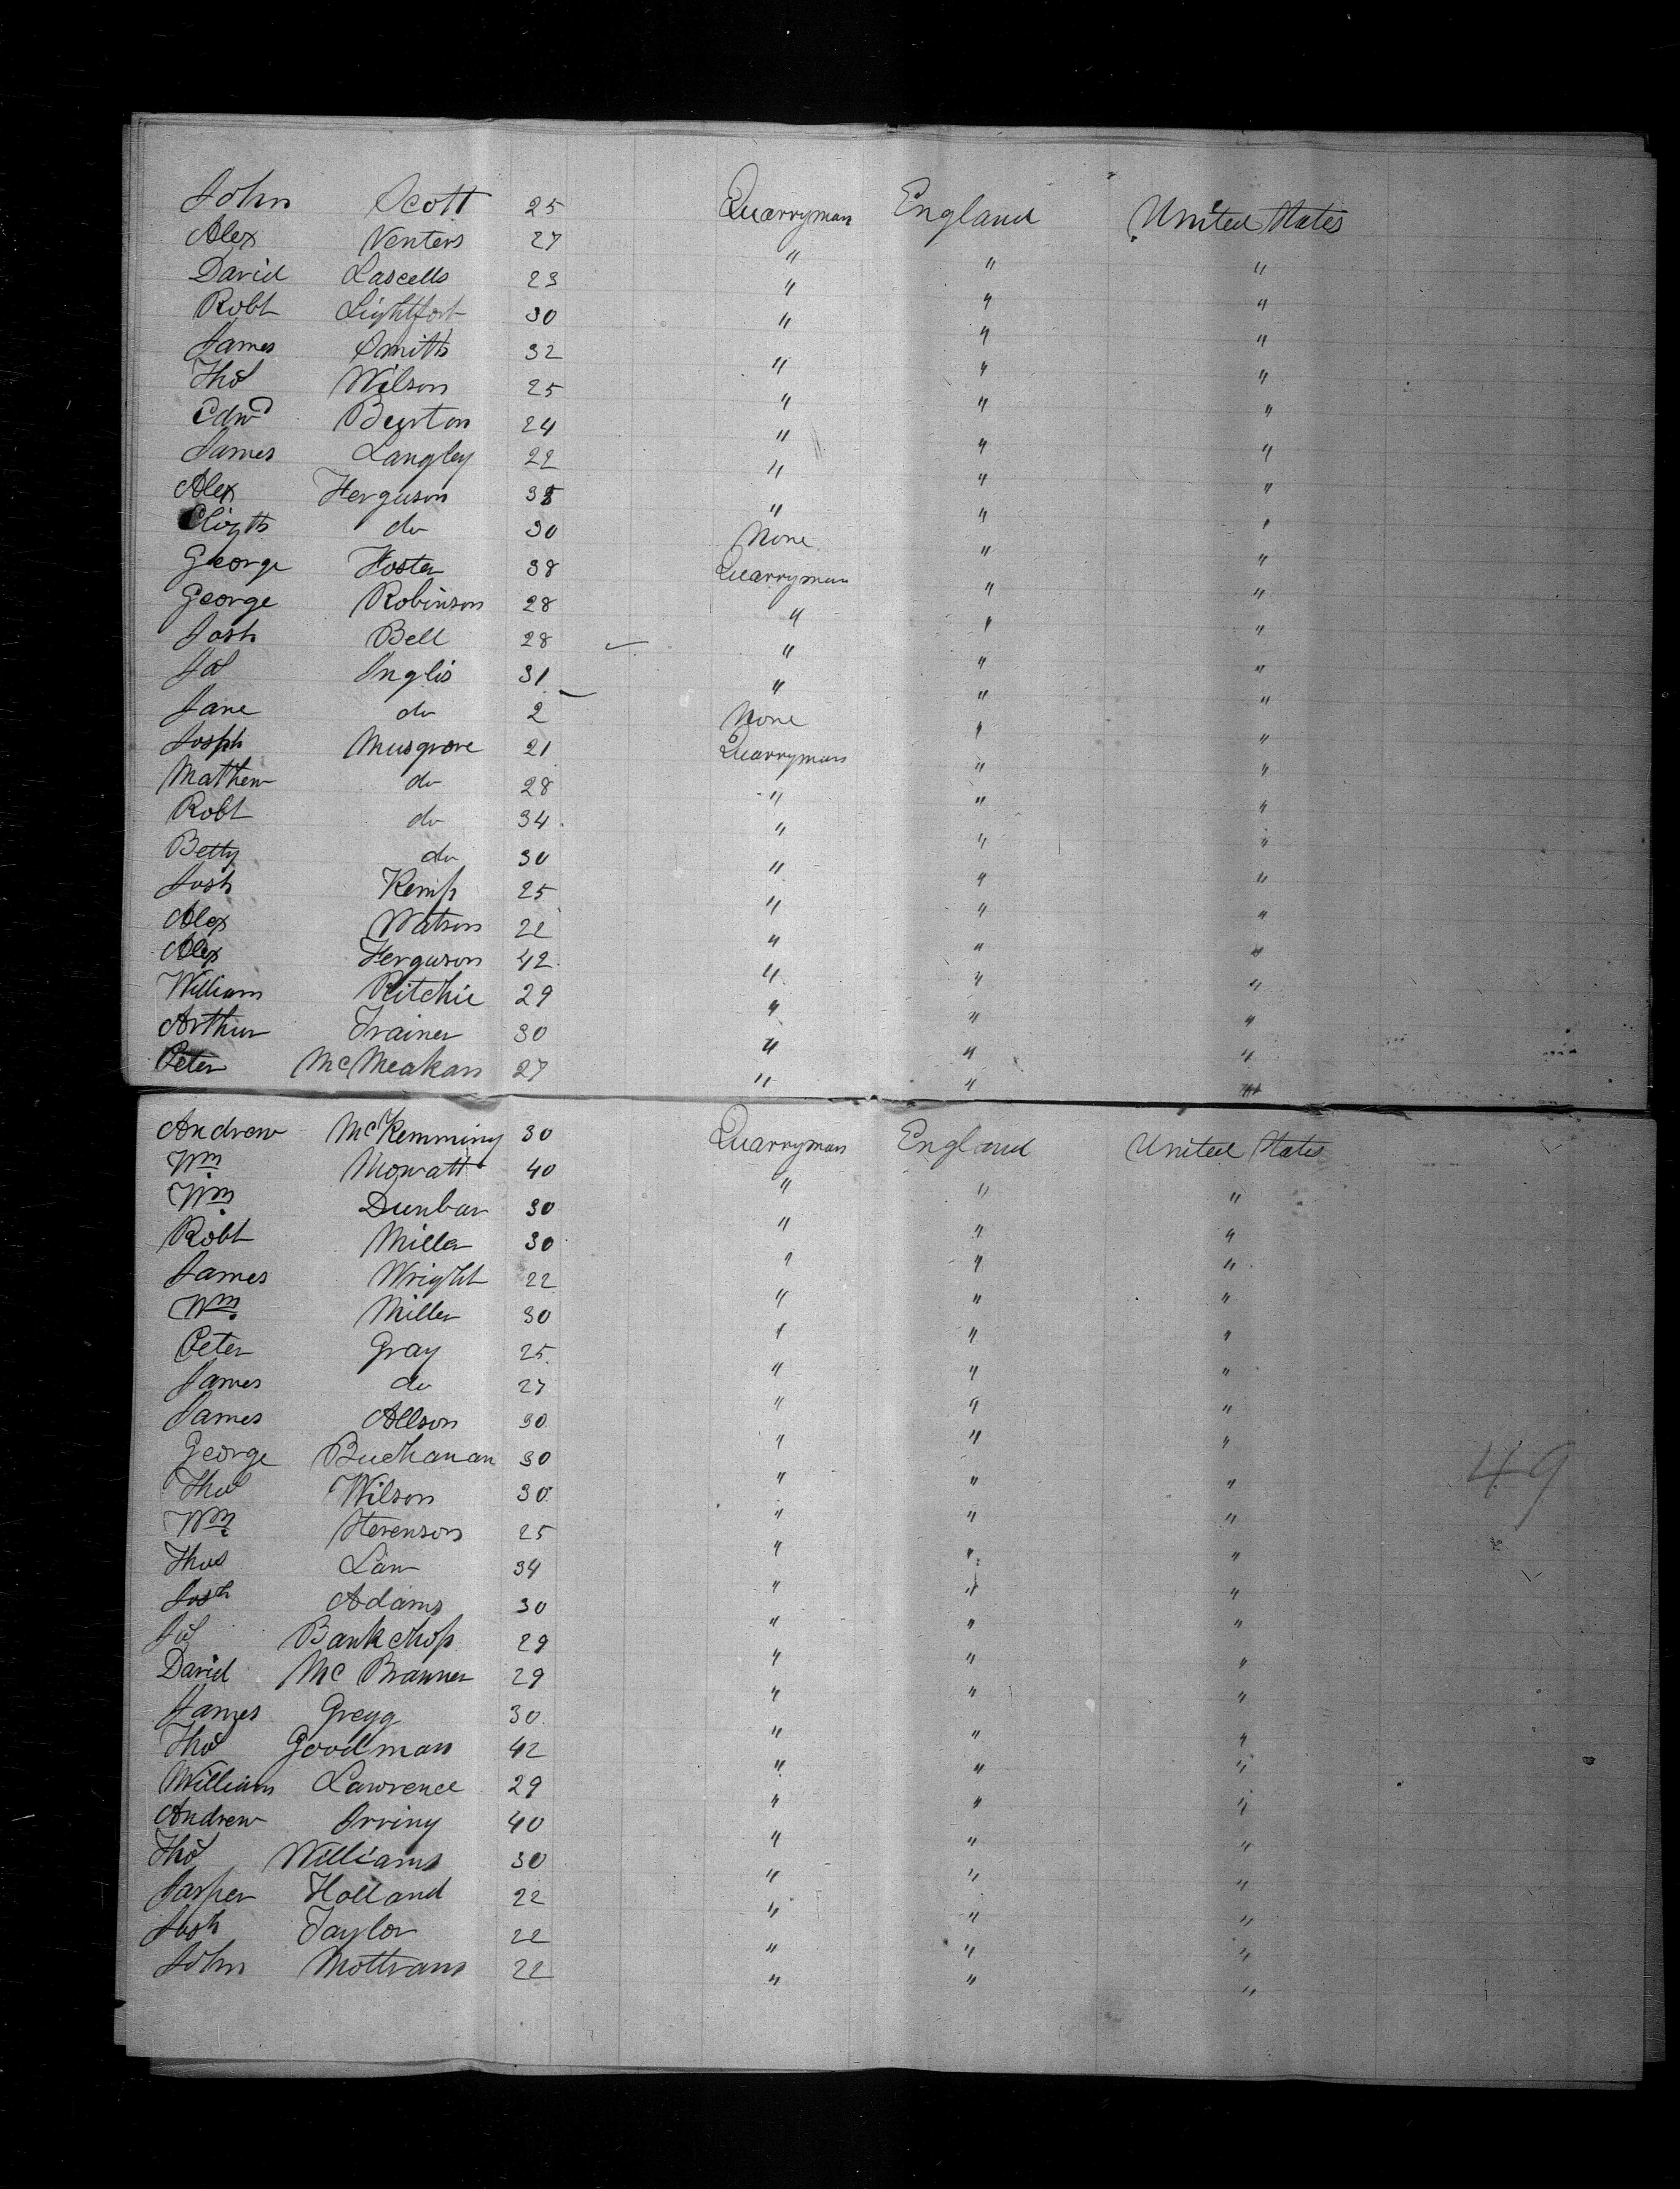 John Scott 25 Quarryman England United States
Alex Venters 27 " " "
David Lascells 23 " " "
Robt Lightfoot 30 " " "
James Smith 32 " " "
Thos Wilson 25 " " "
Edwd Burton 24 " " "
James Langley 22 " " "
Alex Ferguson 35 " " "
Elizth do 30 None " "
George Foster 38 Quarryman " "
George Robinson 28 " " "
Josh Bell 28 " " "
Jas Inglis 31 " " "
Jane do 2 None " "
Josph Musgrove 21 Quarryman " "
Mathew do 28 " " "
Robt do 34 " " "
Betty do 30 " " "
Josh Kemp 25 " " "
Alex Watson 22 " " "
Alex Ferguson 42 " " "
William Ritchie 29 " " "
Arthur Trainer 30 " " "
Peter McMeakan 27 " " "
Andrew McKemminy 30 Quarryman England United States
Wm Mowatt 40 " " "
Wm Dunbar 30 " " "
Robt Miller 30 " " "
James Wright 22 " " "
Wm Miller 30 " " "
Peter Gray 25 " " "
James do 27 " " "
James Allson 30 " " "
George Buchanan 30 " " "
Thos Wilson 30 " " "
Wm Stevenson 25 " " "
Thos Law 34 " " "
Josh Adams 30 " " "
Jos Bankchop 29 " " "
David Mc Branner 29 " " "
James Gregg 30 " " "
Thos Goodman 42 " " "
William Lawrence 29 " " "
Andrew Irving 40 " " "
Thos Williams 30 " " "
Jasper Holland 22 " " "
Josh Taylor 22 " " "
John Mottram 22 " " "
49